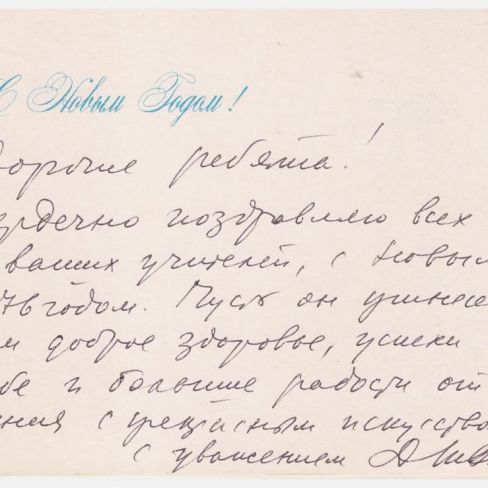 С Новым Годом!
дорогие ребята!
сердечно поздравляю всех
ваших учителей, с новым
76 годом. Пусть он принесе
м доброе здоровье, успехи
бе и больше радости от
ния с прекрасным искусство
с уважением